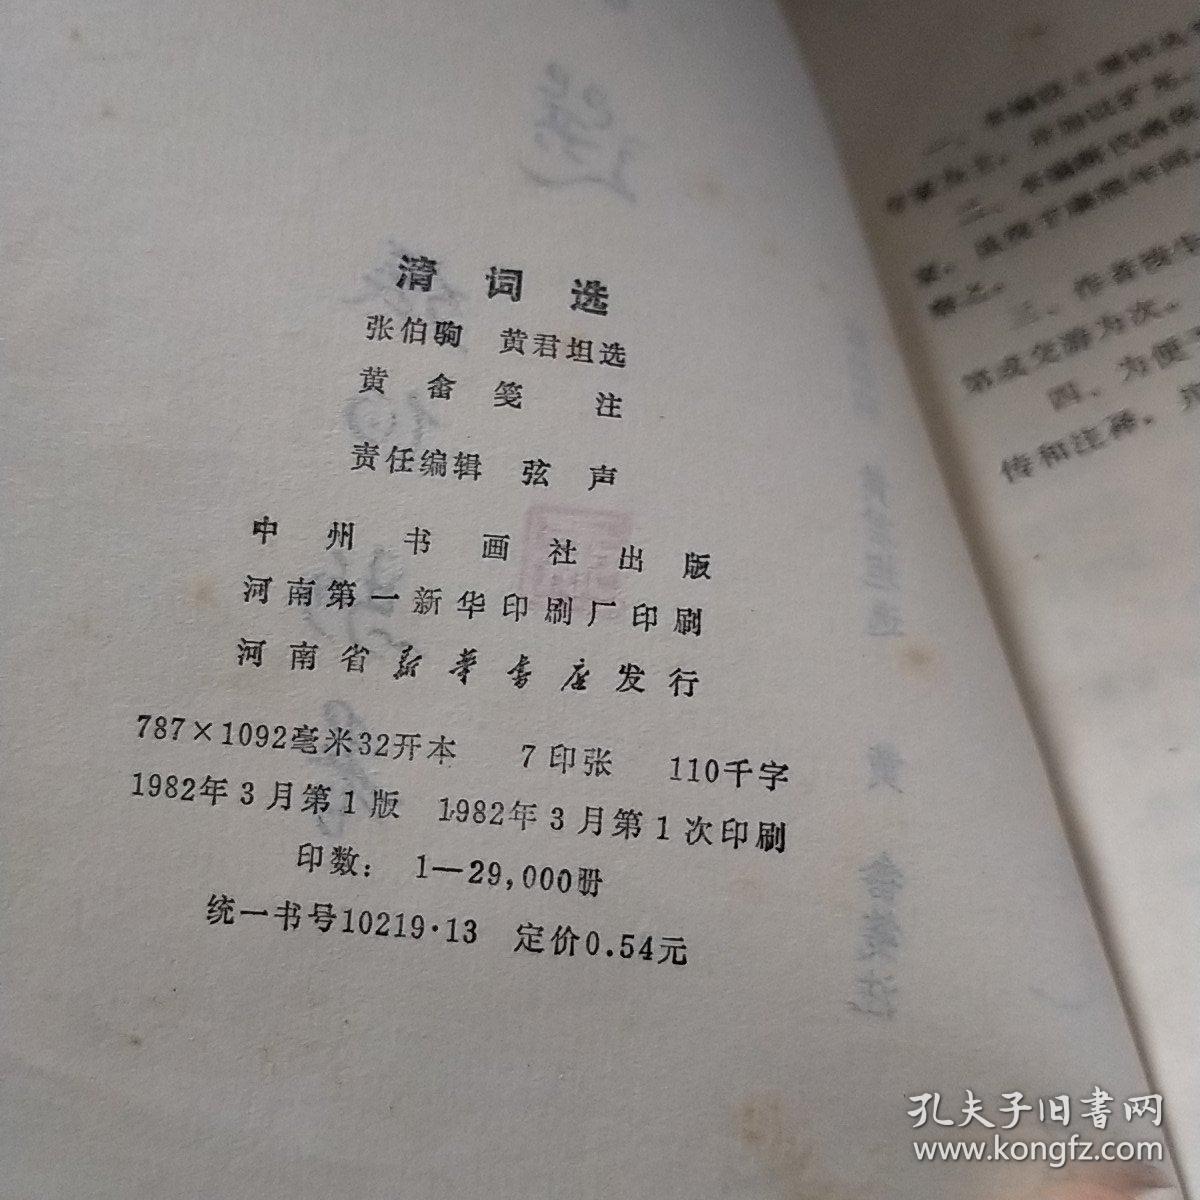 清词选
张伯驹 黄君坦选
黄畲笺注
责任编辑 弦声
中州书画社出版
河南第一新华印刷厂印刷
河南省新华书店发行
787×1092毫米32开本 7印张 110千字
1982年3月第1版 1982年3月第1次印刷
印数：1—29,000册
统一书号10219·13 定价0.54元
三、作者按生
第或交游为次。
四、为便
传和注释，
孔夫子旧书网
www.kongfz.com